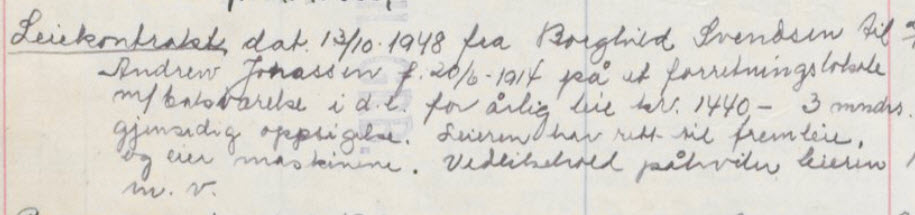 Leiekontrakt, dat. 13/10-1948 fra Borghild Svendsen til
Andrew Johassen f. 20/6-1914 på et forretningslokale
m/ bakværelse i d.e. for årlig leie kr. 1440- 3 mndrs.
gjensidig oppsigelse. Leieren har rett til fremleie,
og eier maskinene. Vedlikehold påhviler leieren
m. v.